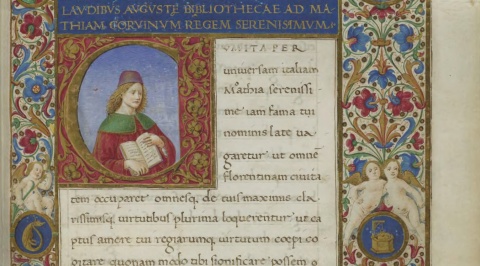 LAVDIBVS AVGVSTE BIBLIOTHECAE AD MA-
THIAM CORVINVM REGEM SERENISIMVM.
VM ITA PER
universam italiam
Mathia serenissi
me iam fama tui
nominis late va
garetur ut omnē
florentinam civita
tem occuparet omnesq; de tuis maximis cla
rissimisq; virtutibus plurima loquerentur ut ca
ptus amore tui regiarumq; virtutum coepi co
gitare quonam modo tibi significare possem o